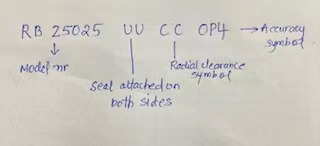 RB 25025 UU CC OP4 → Accuracy
symbol
Model nr
Radial clearance
symbol
Seal attached on
both sides